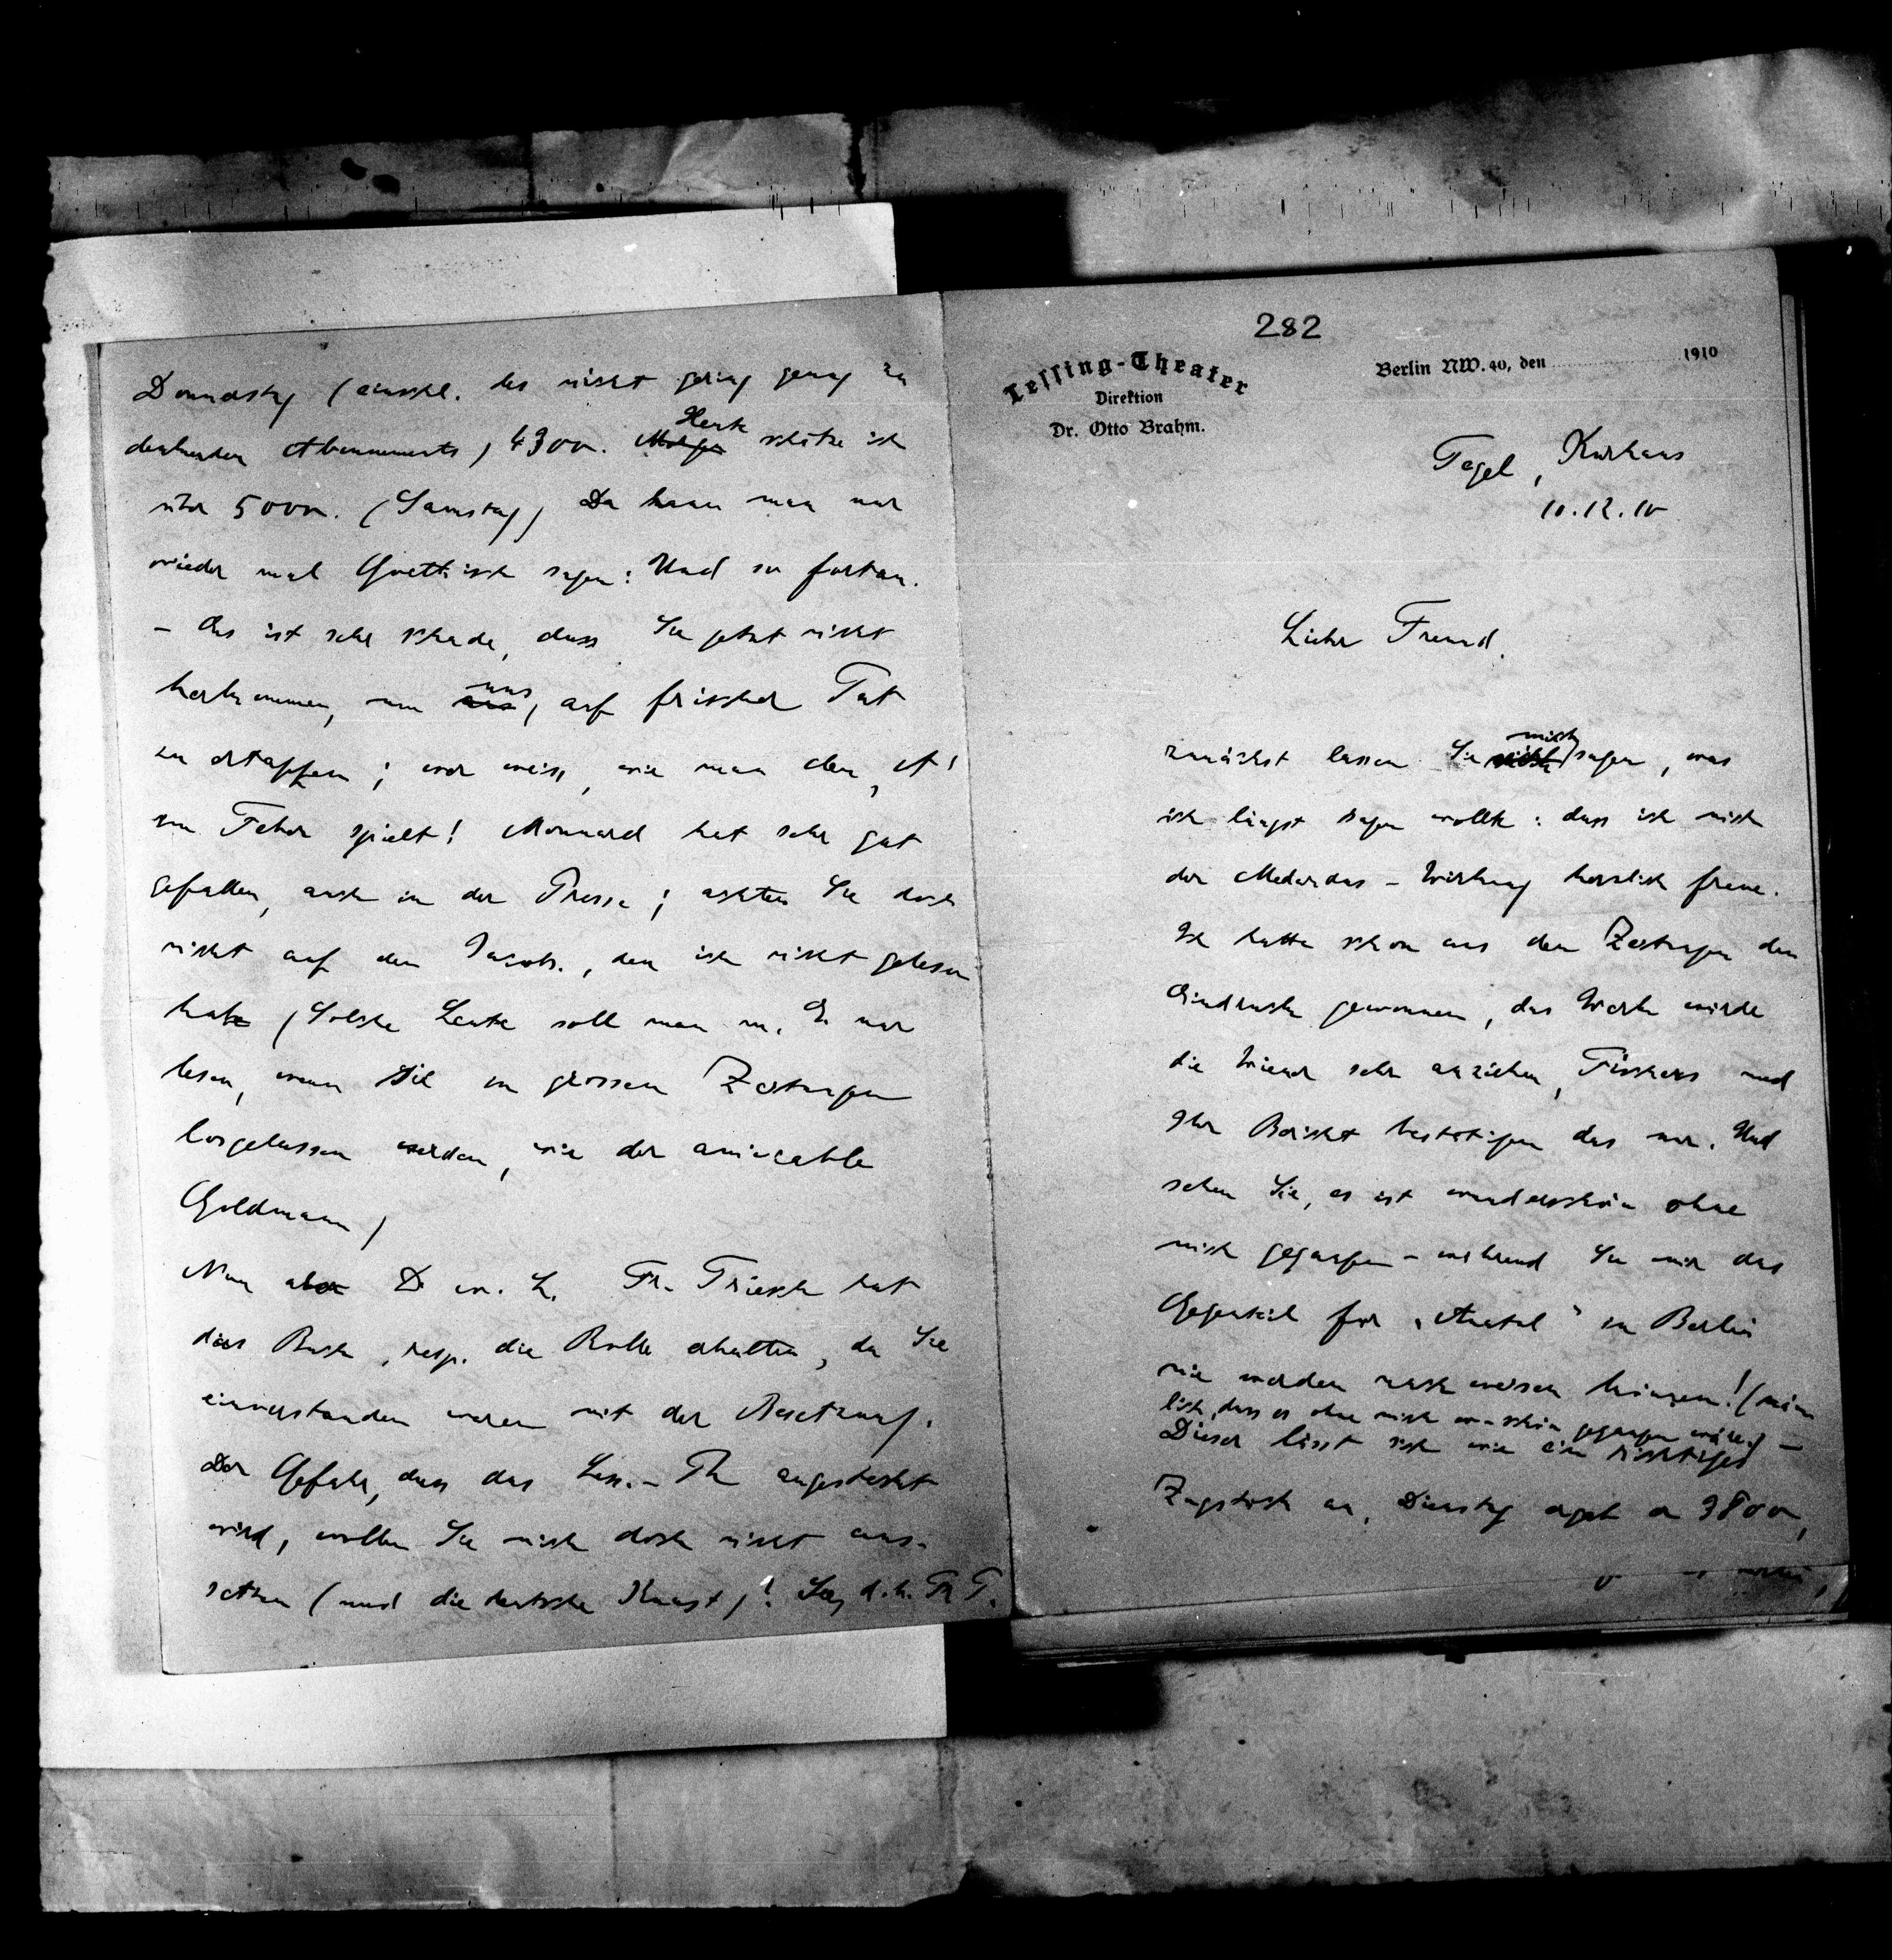 282
Lessing-Theater
Direktion
Dr. Otto Brahm.
Berlin NW. 40, den 1910
Tegel, Kurhaus
10.12.10
Lieber Freund.
zunächst lassen Sie mich sagen, was
ich längst sagen wollte: dass ich mich
der Medardus-Wirkung herzlich freue.
Ich hatte schon aus den Zeitungen den
Eindruck gewonnen, das Werk würde
die Wiener sehr anziehen, Fischers und
Ihr Bericht bestätigen das nur. Und
sehen Sie, es ist wunderschön ohne
mich gegangen – während Sie mir das
Gegenteil für „Anatol“ in Berlin
nie werden nachweisen können! (näm
lich, dass es ohne mich wu-schön gegangen wäre.) –
Dieser lässt sich wie ein richtiges
Zugstück an, Dienstag ergab er 3800,
Donnerstag (einschl. des nicht gering genug zu
denkenden Abonnements) 4300. Morgen Heute schätze ich
über 5000. (Samstag) Da kann man nur
wieder mal Goethisch sagen: Und so fortan.
– Es ist sehr schade, dass Sie jetzt nicht
herkommen, um uns, auf frischer Tat
zu ertappen; wer weiss, wie man den „A“
im Feber spielt! Monnard hat sehr gut
gefallen, auch in der Presse; achten Sie doch
nicht auf den Jacobs., den ich nicht gelesen
habe (Solche Leute soll man m. E. nur
lesen, wenn sie in grossen Zeitungen
losgelassen werden, wie der amicable
Goldmann)
Nun aber D. w. L. Fr. Triesch hat
das Buch, resp. die Rolle erhalten, da Sie
einverstanden waren mit der Besetzung.
Der Gefahr, dass das Less.-Th angesteckt
wird, wollen Sie mich doch nicht aus-
setzen (und die deutsche Kunst)! d. h. Fr T.